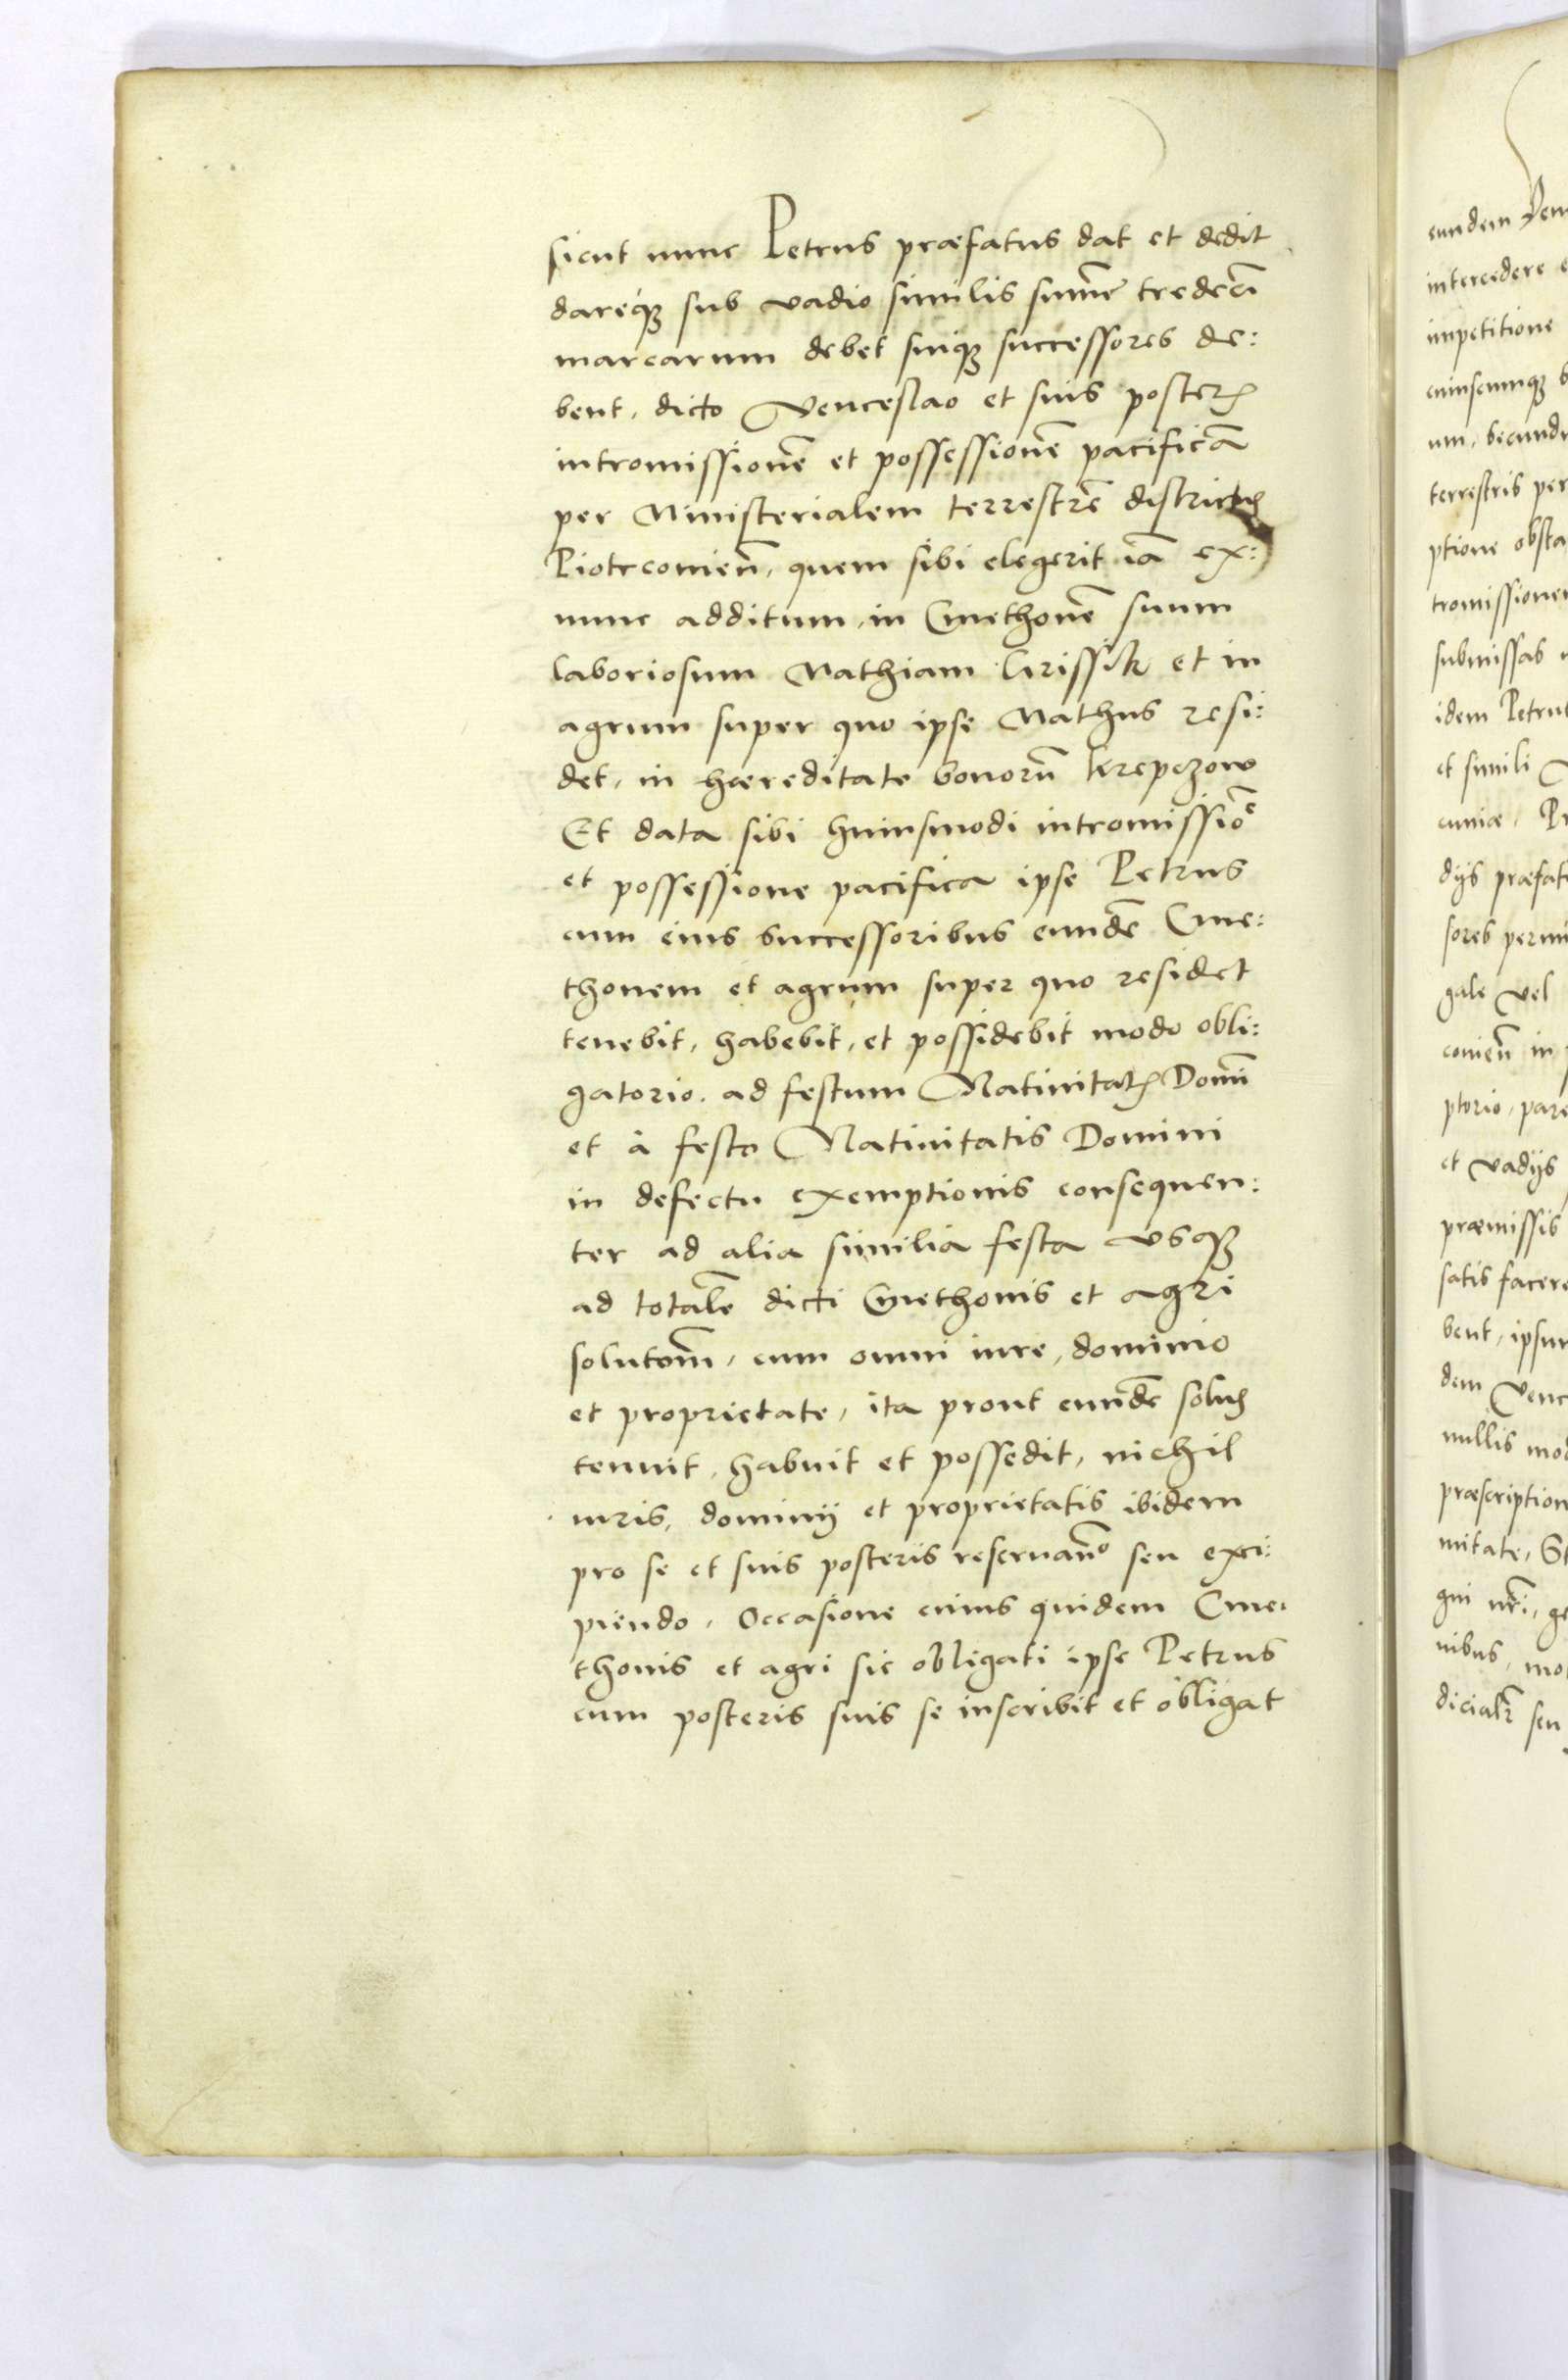 sicut nunc Petrus præfatus dat et dedit
dareq́ꝫ sub vadio similis sum̃e tredeci̅
marcarum debet suiqꝫ successores de:
bent, dicto Venceslao et suis posterꝭ
intromissione̅ et possessione̅ pacifica̅
per Ministerialem terrestre̅ districtus
Piotrconien̅, quem sibi elegerit ia̅ ex:
nunc additum, in Cmethone̅ suum
laboriosum Mathiam Krissik et in
agrum super quo ipse Mathus resi:
det, in hæreditate bonoru̅ Krepczow
Et data sibi huiusmodi intromissio̅e
et possessione pacifica ipse Petrus
cum eius successoribus eunde̅ Cme:
thonem et agrum super quo residet
tenebit, habebit, et possidebit modo obli:
gatorio. ad festum Natiuitatꝭ Domi̅
et à festo Natiuitatis Domini
in defectu exemptionis consequen:
ter ad alia similia festa vsqꝫ
ad totale̅ dicti Cmethonis et agri
soluto̅m, cum omni iure, dominio
et proprietate, ita prout eunde̅ solus
tenuit, habuit et possedit, nichil
iuris, dominij et proprietatis ibidem
pro se et suis posteris reseruan̅o seu exci:
piendo. Occasione cuius quidem Cme:
thonis et agri sic obligati ipse Petrus
cum posteris suis se inscribit et obligat
eundem Ven
intercedere e
impetitione
cuiuscunqꝫ
um, secund
terrestris per
ptione obsta
tromissionem
submissas
idem Petrus
et simili
cuniæ, Pr
dijs præfat
sores permi
gale vel
conien̅ in
ptorio, pare
et vadijs
præmissis
satis facere
bent, ipsum
dem Vence
nullis mod
præscription
mitate, St
gni nr̅i, ge
nibus, mo
dicialr̅ seu